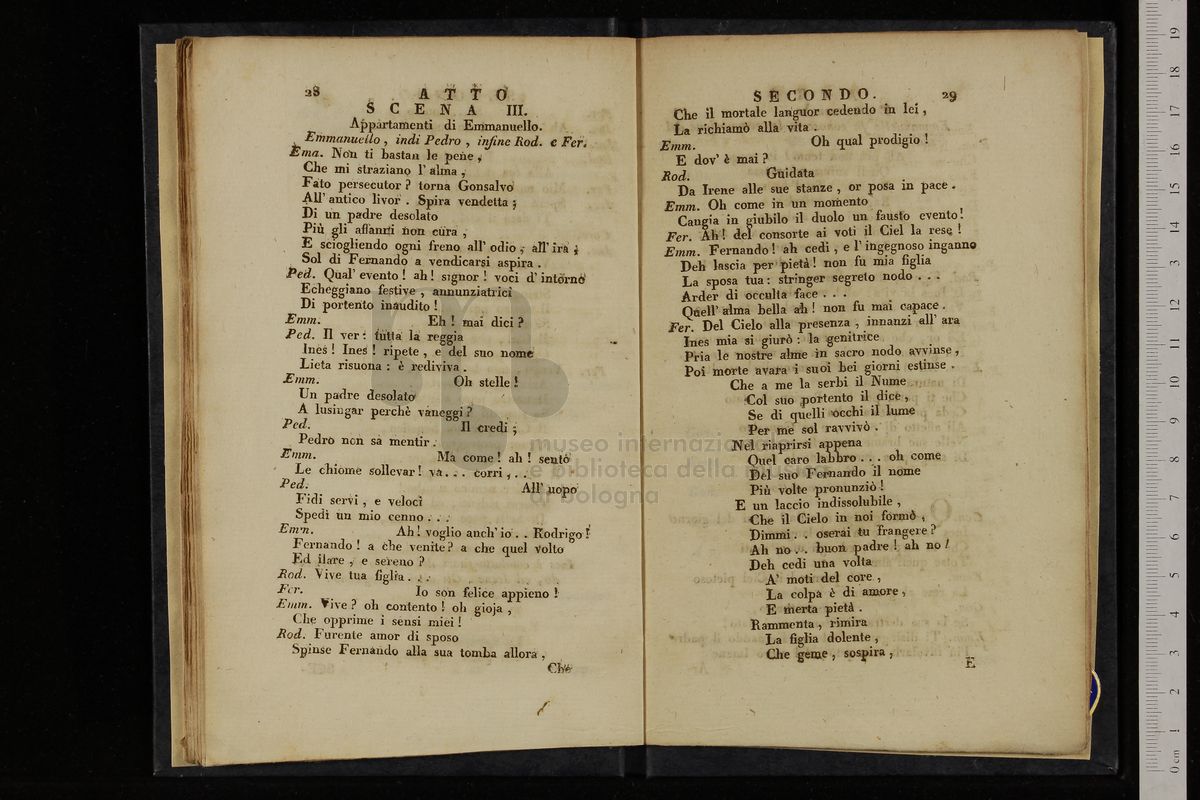 28 ATTO
SCENA III.
Appartamenti di Emmanuello.
Emmanuello , indi Pedro , infine Rod. e Fer.
Ema. Non ti bastan le pene ,
Che mi straziano l' alma ,
Fato persecutor ? torna Gonsalvo
All' antico livor . Spira vendetta ;
Di un padre desolato
Più gli affanni non cura ,
E sciogliendo ogni freno all' odio , all' ira ;
Sol di Fernando a vendicarsi aspira .
Ped. Qual' evento ! ah ! signor ! voci d' intorno
Echeggiano festive , annunziatrici
Di portento inaudito !
Emm. Eh ! mai dici ?
Ped. Il ver : tutta la reggia
Ines ! Ines ! ripete , e del suo nome
Lieta risuona : è rediviva .
Emm. Oh stelle !
Un padre desolato
A lusingar perchè vaneggi ?
Ped. Il credi ;
Pedro non sa mentir .
Emm. Ma come ! ah ! sento
Le chiome sollevar ! va . . . corri , . .
Ped. All' uopo
Fidi servi , e veloci
Spedì un mio cenno . . .
Emm. Ah ! voglio anch' io . . Rodrigo !
Fernando ! a che venite ? a che quel volto
Ed ilare , e sereno ?
Rod. Vive tua figlia . . .
Fer. Io son felice appieno !
Emm. Vive ? oh contento ! oh gioja ,
Che opprime i sensi miei !
Rod. Furente amor di sposo
Spinse Fernando alla sua tomba allora ,
Che
SECONDO. 29
Che il mortale languor cedendo in lei ,
La richiamò alla vita .
Emm. Oh qual prodigio !
E dov' è mai ?
Rod. Guidata
Da Irene alle sue stanze , or posa in pace .
Emm. Oh come in un momento
Cangia in giubilo il duolo un fausto evento !
Fer. Ah ! del consorte ai voti il Ciel la rese !
Emm. Fernando ! ah cedi , e l' ingegnoso inganno
Deh lascia per pietà ! non fu mia figlia
La sposa tua : stringer segreto nodo . . .
Arder di occulta face . . .
Quell' alma bella ah ! non fu mai capace .
Fer. Del Cielo alla presenza , innanzi all' ara
Ines mia si giurò : la genitrice
Pria le nostre alme in sacro nodo avvinse ,
Poi morte avara i suoi bei giorni estinse .
Che a me la serbi il Nume
Col suo portento il dice ,
Se di quelli occhi il lume
Per me sol ravvivò .
Nel riaprirsi appena
Quel caro labbro . . . oh come
Del suo Fernando il nome
Più volte pronunziò !
E un laccio indissolubile ,
Che il Cielo in noi formò ,
Dimmi . . oserai tu frangere ?
Ah no . . buon padre ! ah no !
Deh cedi una volta
A' moti del core ,
La colpa è di amore ,
E merta pietà .
Rammenta , rimira
La figlia dolente ,
Che geme , sospira ,
E
museo internazionale
e biblioteca della musica
di bologna
0 cm 1 2 3 4 5 6 7 8 9 10 11 12 13 14 15 16 17 18 19